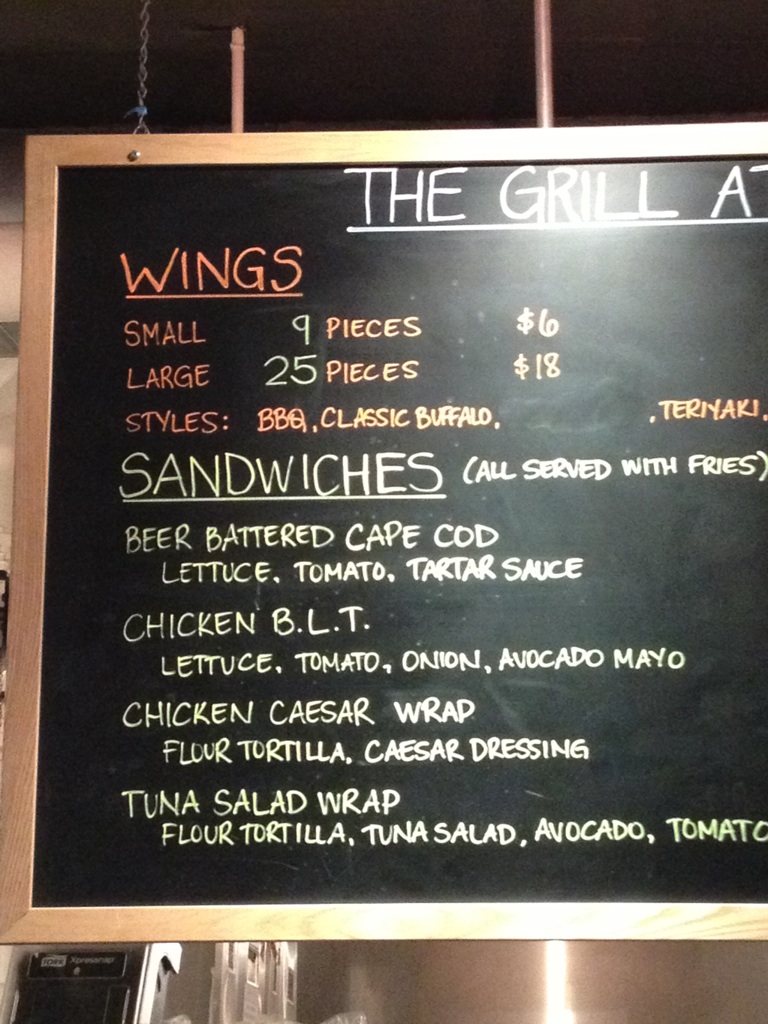 THE GRILL AT
WINGS
SMALL 9 PIECES $6
LARGE 25 PIECES $18
STYLES: BBQ, CLASSIC BUFFALO, , TERIYAKI,
SANDWICHES (ALL SERVED WITH FRIES)
BEER BATTERED CAPE COD
LETTUCE, TOMATO, TARTAR SAUCE
CHICKEN B.L.T.
LETTUCE, TOMATO, ONION, AVOCADO MAYO
CHICKEN CAESAR WRAP
FLOUR TORTILLA, CAESAR DRESSING
TUNA SALAD WRAP
FLOUR TORTILLA, TUNA SALAD, AVOCADO, TOMATO
Xpressnap